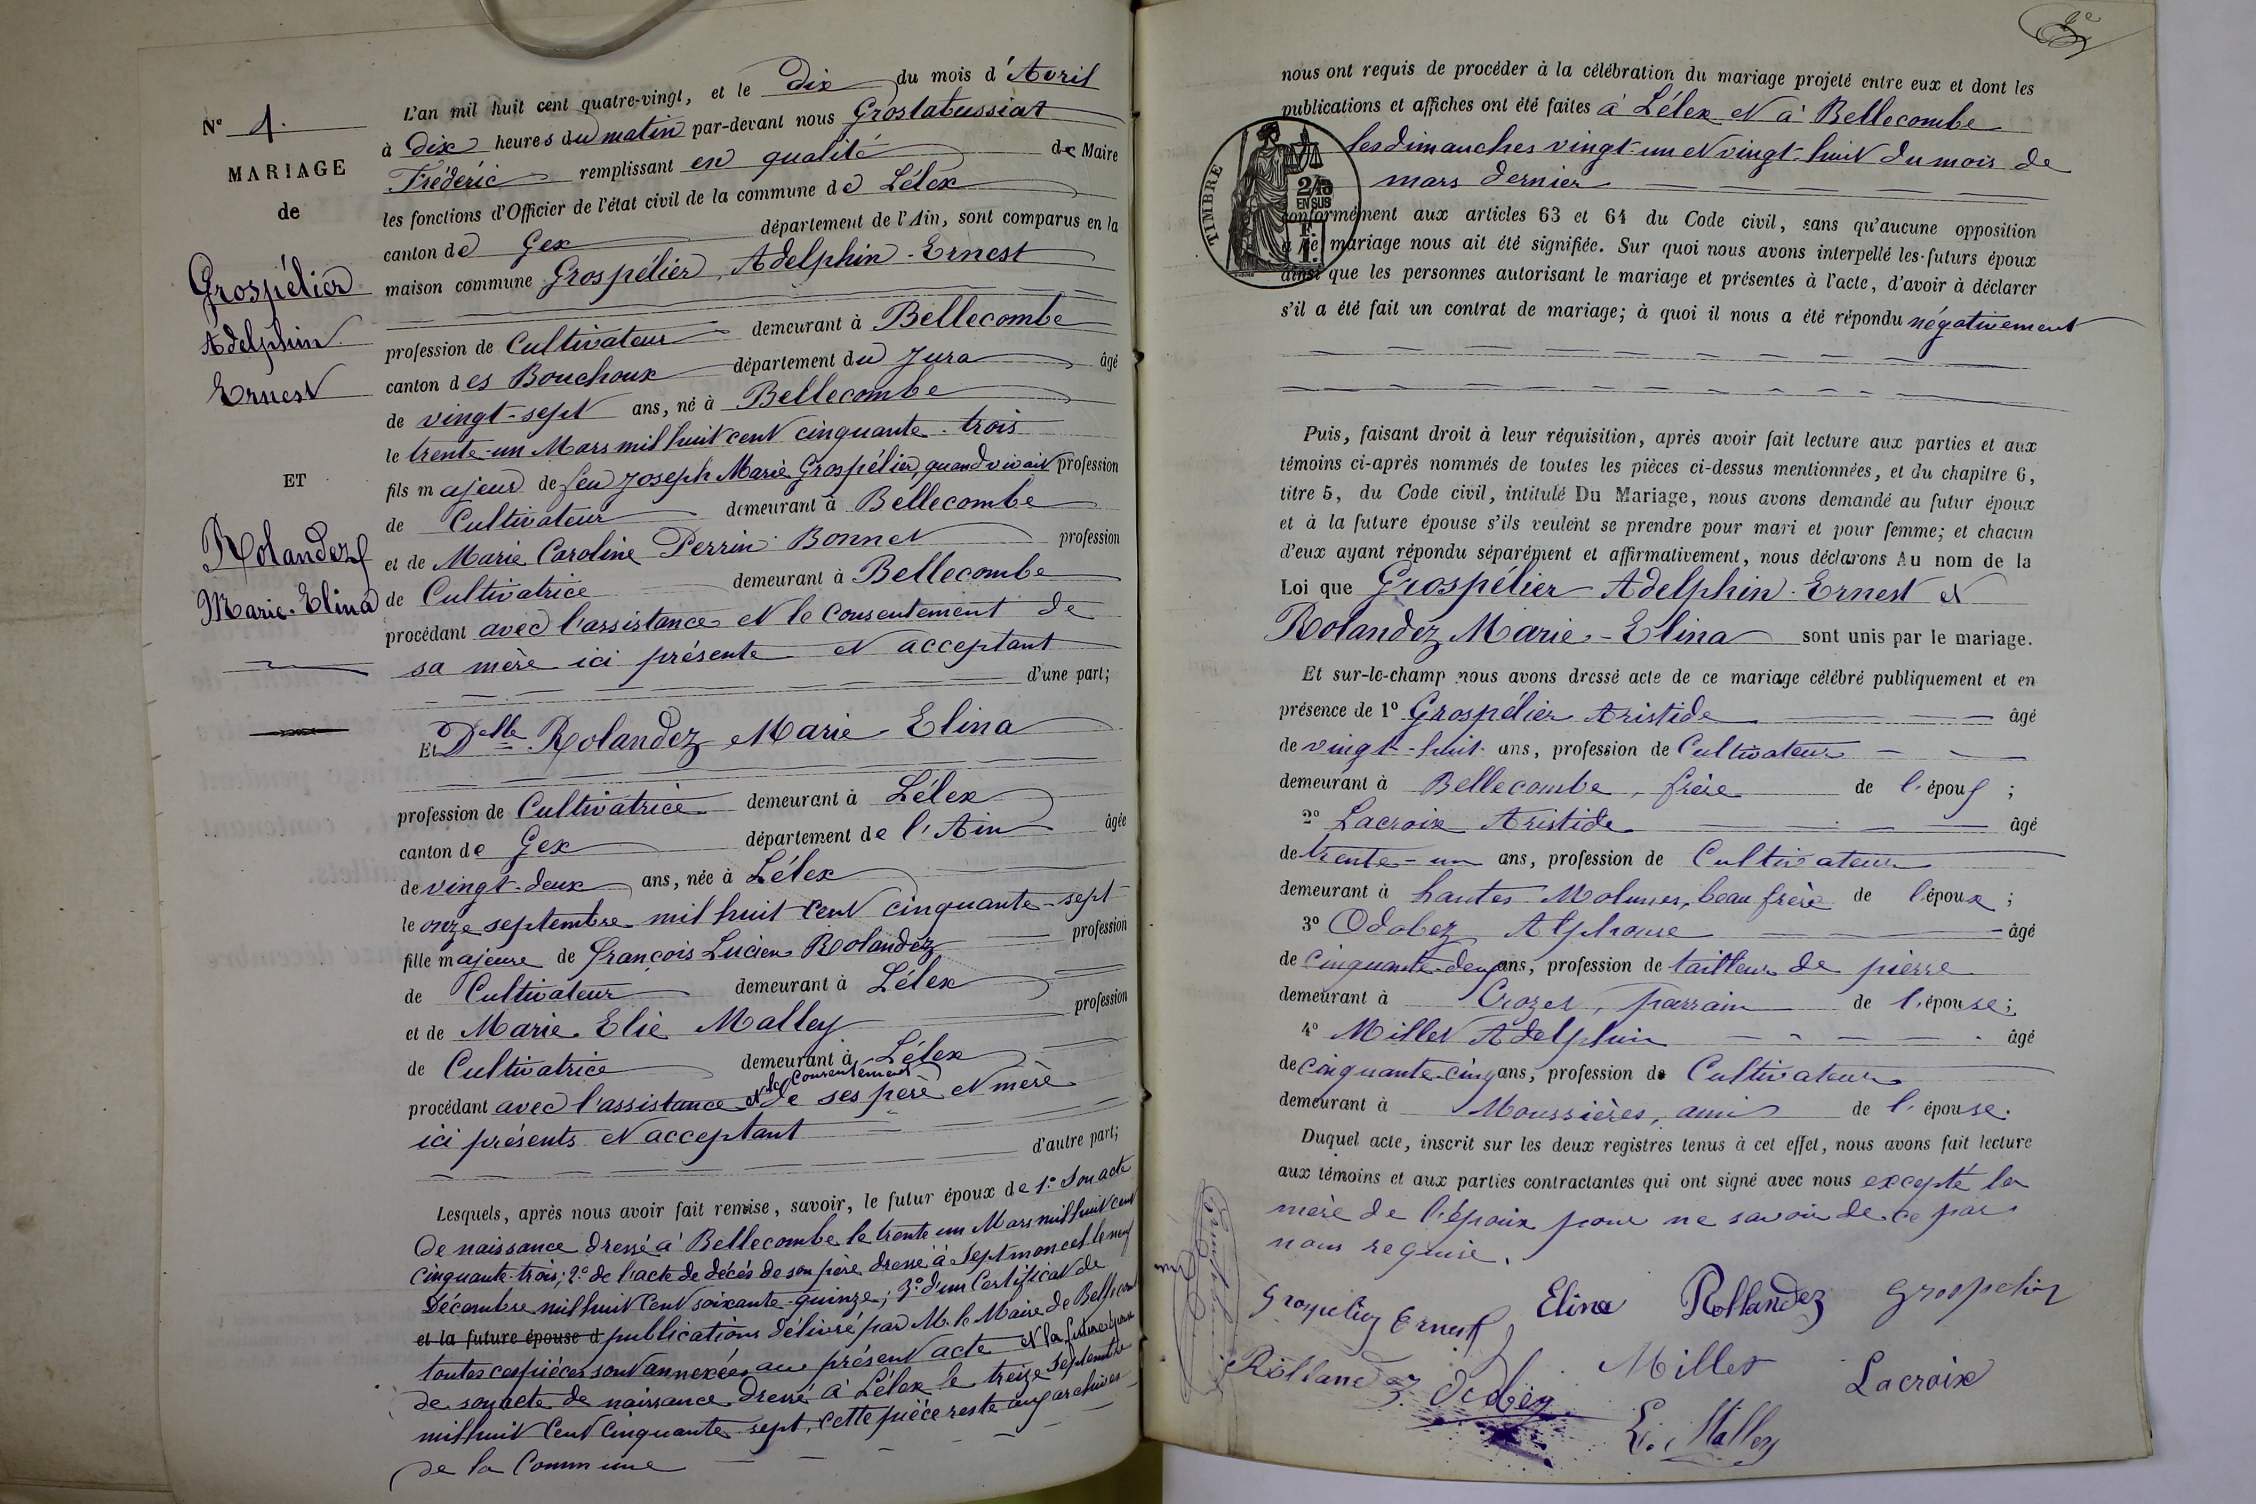 N° 1.
MARIAGE
de
Grospélier
Adelphin
Ernest
ET
Rolandez
Marie-Elina
L'an mil huit cent quatre-vingt, et le Dix du mois d'Avril
à Dix heures du matin par-devant nous Grostabussiat
Frédéric remplissant en qualité de Maire
les fonctions d'Officier de l'état civil de la commune de Lélex
canton de Gex département de l'Ain, sont comparus en la
maison commune Grospélier, Adelphin-Ernest
profession de Cultivateur demeurant à Bellecombe
canton des Bouchoux département du Jura âgé
de vingt-sept ans, né à Bellecombe
le trente-un Mars mil huit cent cinquante-trois
fils majeur de feu Joseph Marie Grospélier, quand vivait profession
de Cultivateur demeurant à Bellecombe
et de Marie Caroline Perrin Bonnet profession
de Cultivatrice demeurant à Bellecombe
procédant avec l'assistance et le consentement de
sa mère ici présente et acceptant
d'une part;
Et Delle Rolandez Marie Elina
profession de Cultivatrice demeurant à Lélex
canton de Gex département de l'Ain âgée
de vingt-deux ans, née à Lélex
le onze septembre mil huit cent cinquante-sept
fille majeure de François Lucien Rolandez profession
de Cultivateur demeurant à Lélex
et de Marie Elie Malley profession
de Cultivatrice demeurant à Lélex
procédant avec l'assistance et le consentement de ses père et mère
ici présents et acceptant
d'autre part;
Lesquels, après nous avoir fait remise, savoir, le futur époux de 1° Son acte
De naissance dressé à Bellecombe le trente un Mars mil huit cent
cinquante-trois; 2° de l'acte de décès de son père dressé à Septmoncel le neuf
Décembre mil huit cent soixante-quinze; 3° d'un Certificat de
et la future épouse d publications délivré par M. le Maire de Bellecombe
toutes ces pièces sont annexées au présent acte et la future épouse
de son acte de naissance dressé à Lélex le treize septembre
mil huit cent cinquante sept, cette pièce reste aux archives
de la Commune
3e
nous ont requis de procéder à la célébration du mariage projeté entre eux et dont les
publications et affiches ont été faites à Lélex et à Bellecombe
les dimanches vingt-un et vingt-huit du mois de
mars dernier
TIMBRE
2/10
EN SUS
F.
1.
conformément aux articles 63 et 64 du Code civil, sans qu'aucune opposition
à ce mariage nous ait été signifiée. Sur quoi nous avons interpellé les futurs époux
ainsi que les personnes autorisant le mariage et présentes à l'acte, d'avoir à déclarer
s'il a été fait un contrat de mariage; à quoi il nous a été répondu négativement
Puis, faisant droit à leur réquisition, après avoir fait lecture aux parties et aux
témoins ci-après nommés de toutes les pièces ci-dessus mentionnées, et du chapitre 6,
titre 5, du Code civil, intitulé Du Mariage, nous avons demandé au futur époux
et à la future épouse s'ils veulent se prendre pour mari et pour femme; et chacun
d'eux ayant répondu séparément et affirmativement, nous déclarons Au nom de la
Loi que Grospélier Adelphin-Ernest et
Rolandez Marie-Elina sont unis par le mariage.
Et sur-le-champ nous avons dressé acte de ce mariage célébré publiquement et en
présence de 1° Grospélier Aristide âgé
de vingt-huit ans, profession de Cultivateur
demeurant à Bellecombe, frère de l'époux;
2° Lacroix Aristide âgé
de trente-un ans, profession de Cultivateur
demeurant à hautes Molunes, beau frère de l'époux;
3° Odobez Alphonse âgé
de cinquante-deux ans, profession de tailleur de pierre
demeurant à Crozet, parrain de l'épouse;
4° Millet Adelphin âgé
de cinquante-cinq ans, profession de Cultivateur
demeurant à Moussières, ami de l'épouse.
Duquel acte, inscrit sur les deux registres tenus à cet effet, nous avons fait lecture
aux témoins et aux parties contractantes qui ont signé avec nous excepté la
mère de l'époux pour ne savoir de ce par
nous requise.
Grospelier Ernest Elina Rollandez Grospelier
Rolland ez Odobez Millet Lacroix
E. Malley